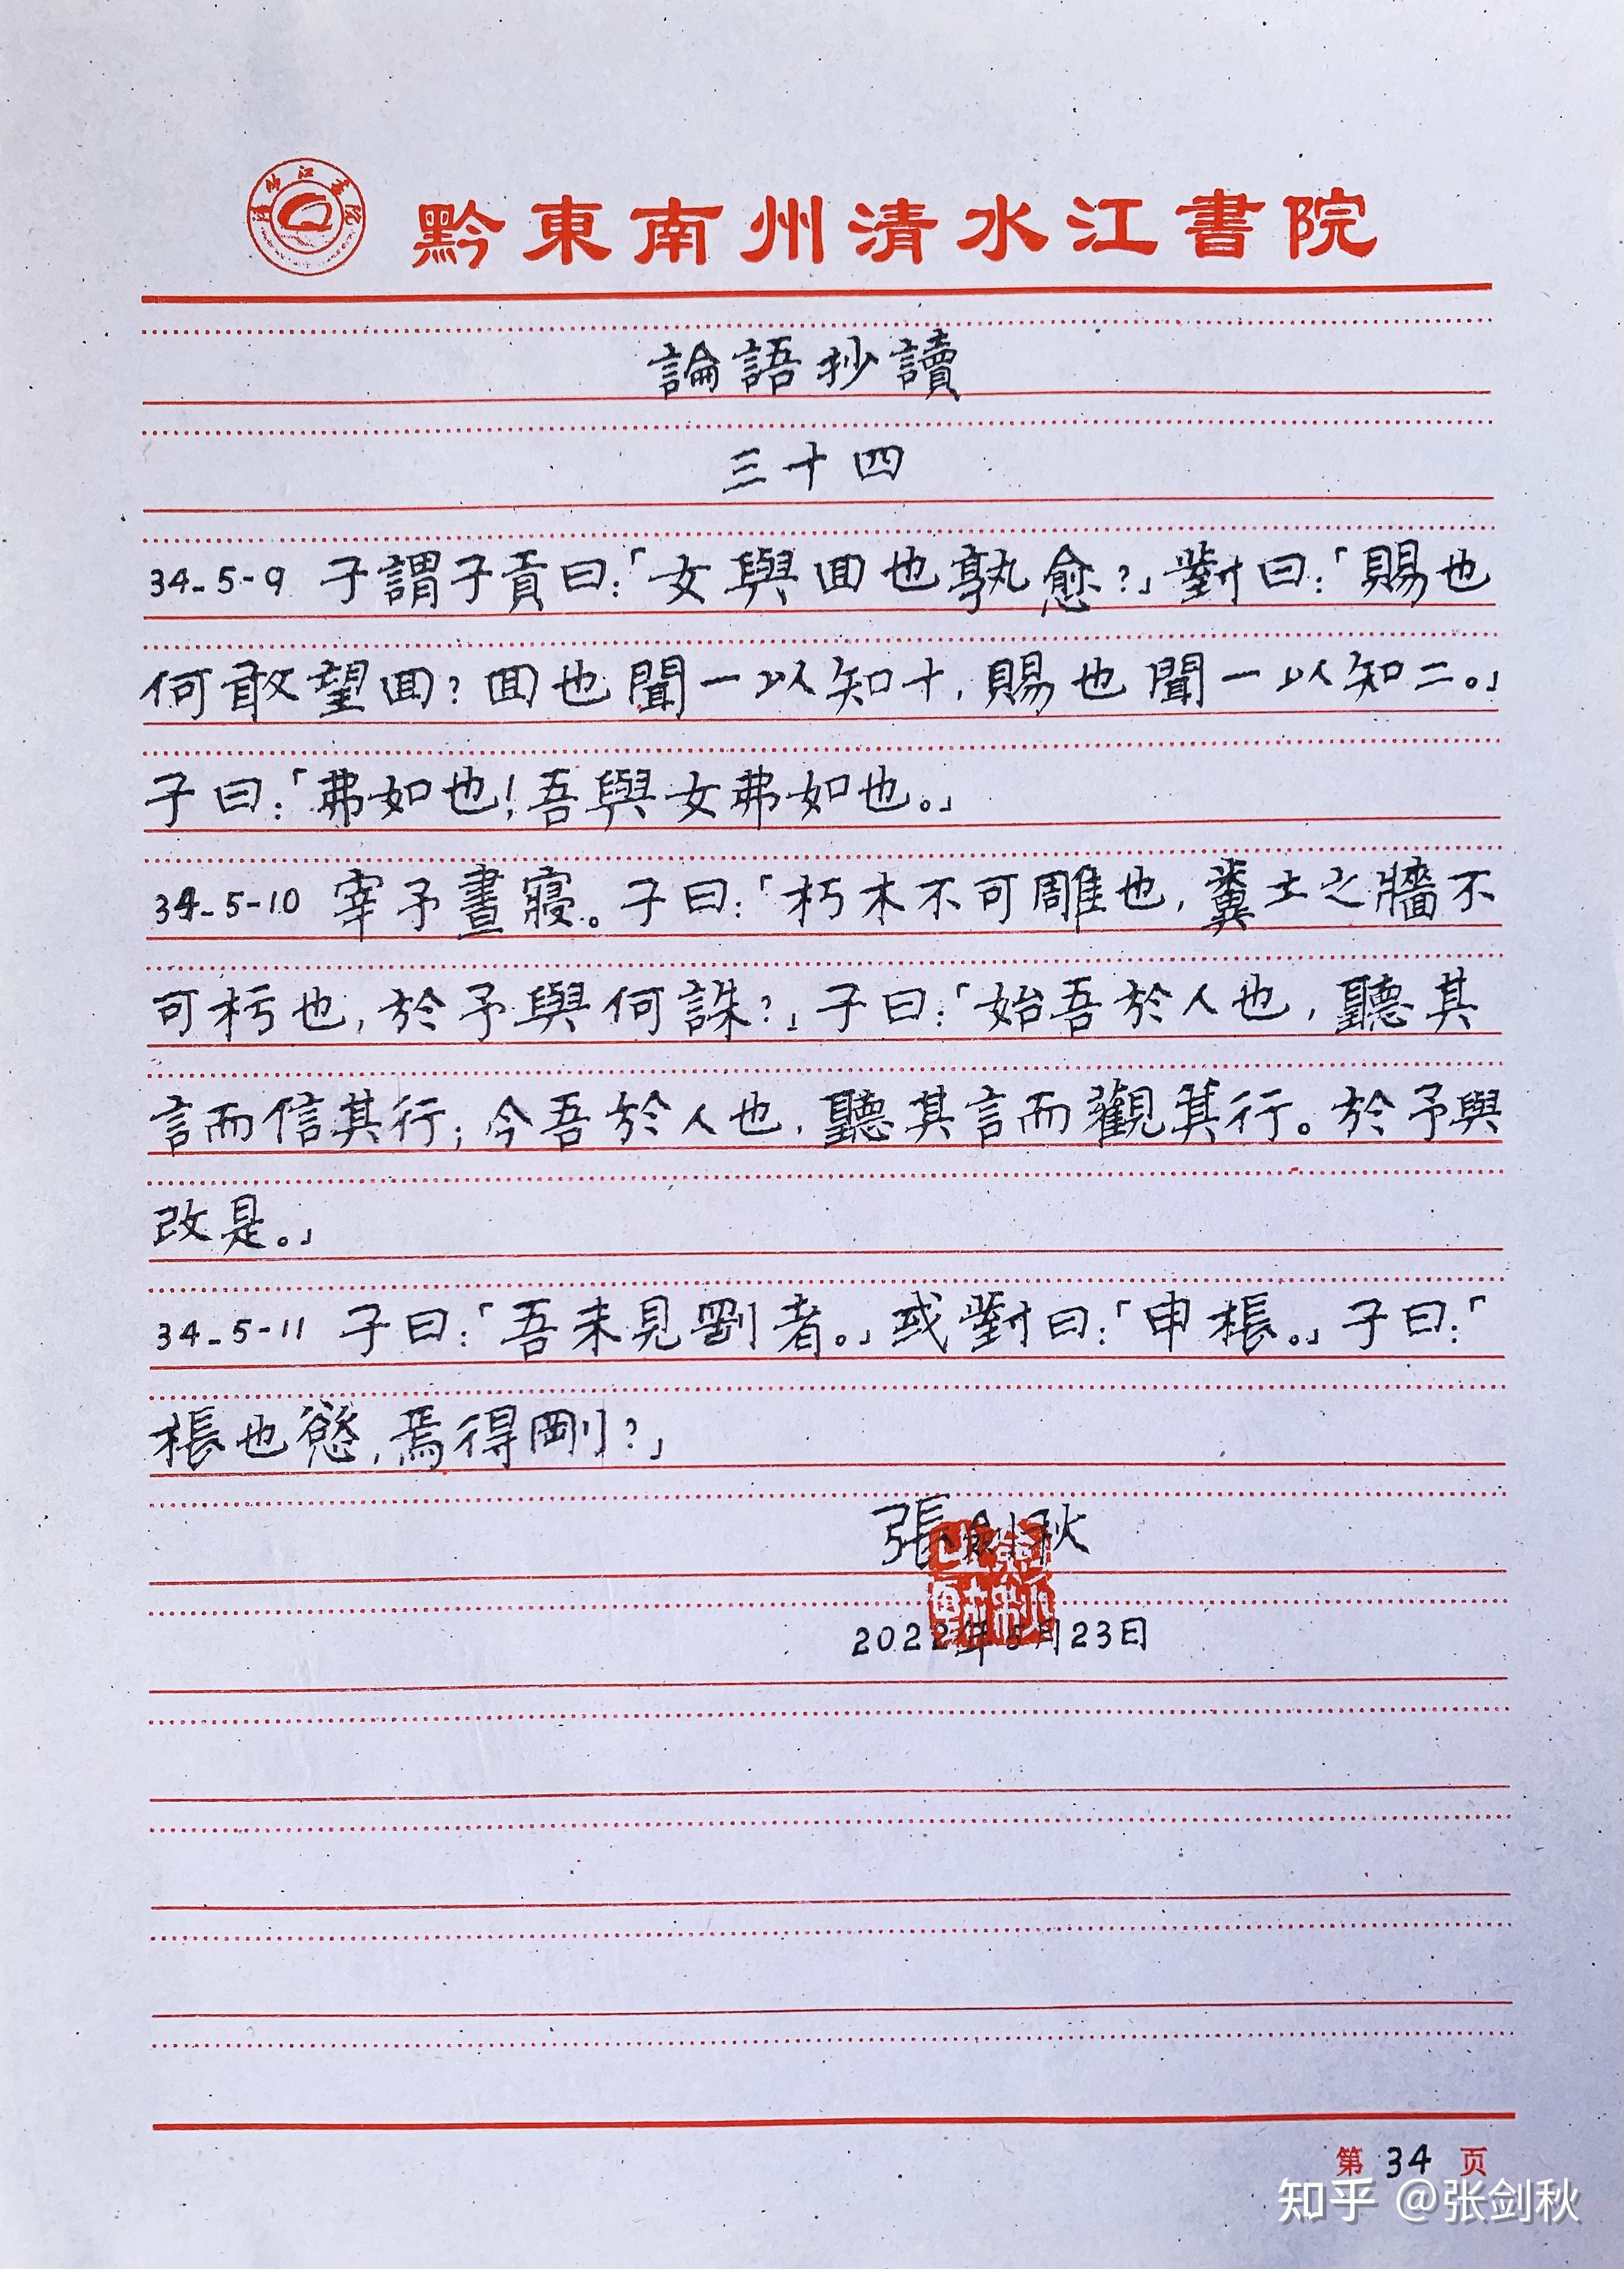 黔東南州清水江書院
論語抄讀
三十四
34-5-9 子謂子貢曰:「女與囬也孰愈?」對曰:「賜也
何敢望囬?囬也聞一以知十,賜也聞一以知二。」
子曰:「弗如也!吾與女弗如也。」
34-5-10 宰予晝寢。子曰:「朽木不可雕也,糞土之牆不
可杇也,於予與何誅?」子曰:「始吾於人也,聽其
言而信其行;今吾於人也,聽其言而觀其行。於予與
改是。」
34-5-11 子曰:「吾未見剛者。」或對曰:「申棖。」子曰:「
棖也慾,焉得剛?」
張劍秋
2022年5月23日
第 34 页
知乎 @张剑秋